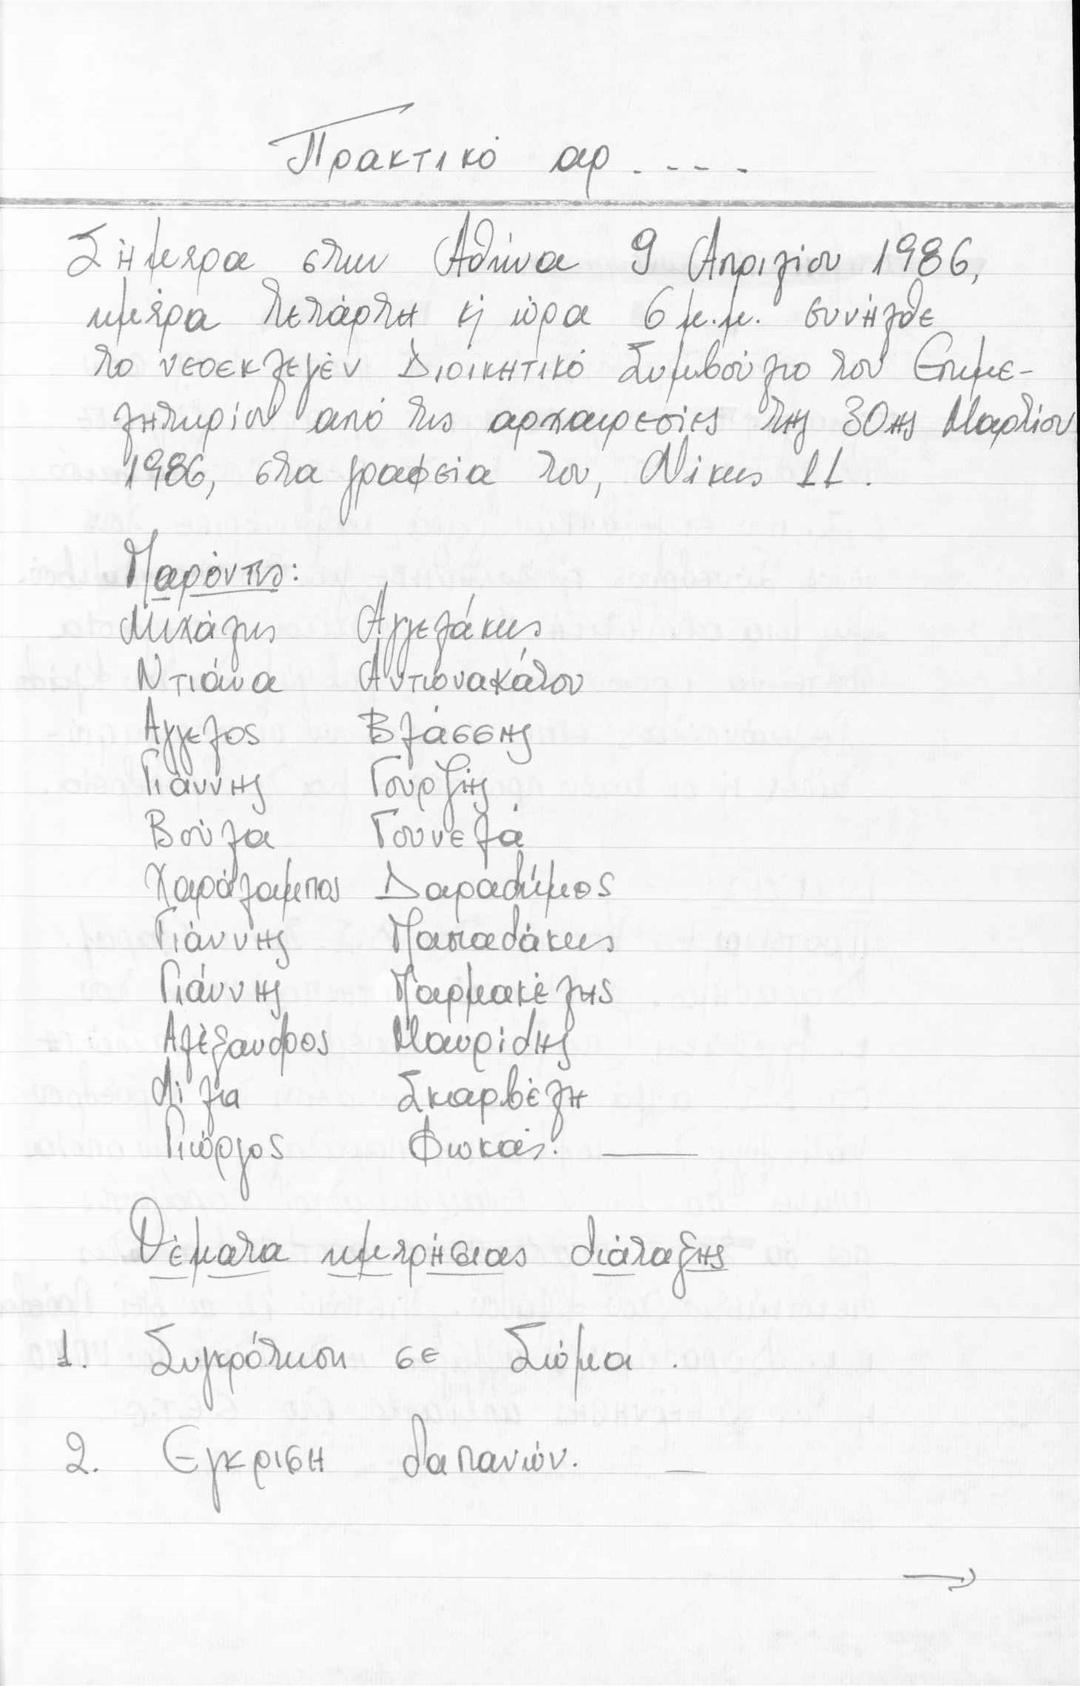 Πρακτικό αρ ....
Σήμερα στην Αθήνα 9 Απριλίου 1986,
ημέρα Τετάρτη κ' ώρα 6 μ.μ. συνήλθε
το νεοεκλεγέν Διοικητικό Συμβούλιο του Επιμε-
λητηρίου από τις αρχαιρεσίες της 30ης Μαρτίου
1986, στα γραφεία του, Νίκης 11.
Παρόντες:
Μιχάλης Αγγελάκης
Ντιάνα Αντωνακάτου
Άγγελος Βλάσσης
Γιάννης Γουρζής
Βούλα Γουνελά
Χαράλαμπος Δαραδήμος
Γιάννης Παπαδάκης
Γιάννης Παρμακέλης
Αλέξανδρος Μαυρίδης
Λίλια Σκαρβέλη
Γιώργος Φωκάς.
Θέματα ημερήσιας διάταξης
1. Συγκρότηση σε Σώμα.
2. Έγκριση δαπανών.